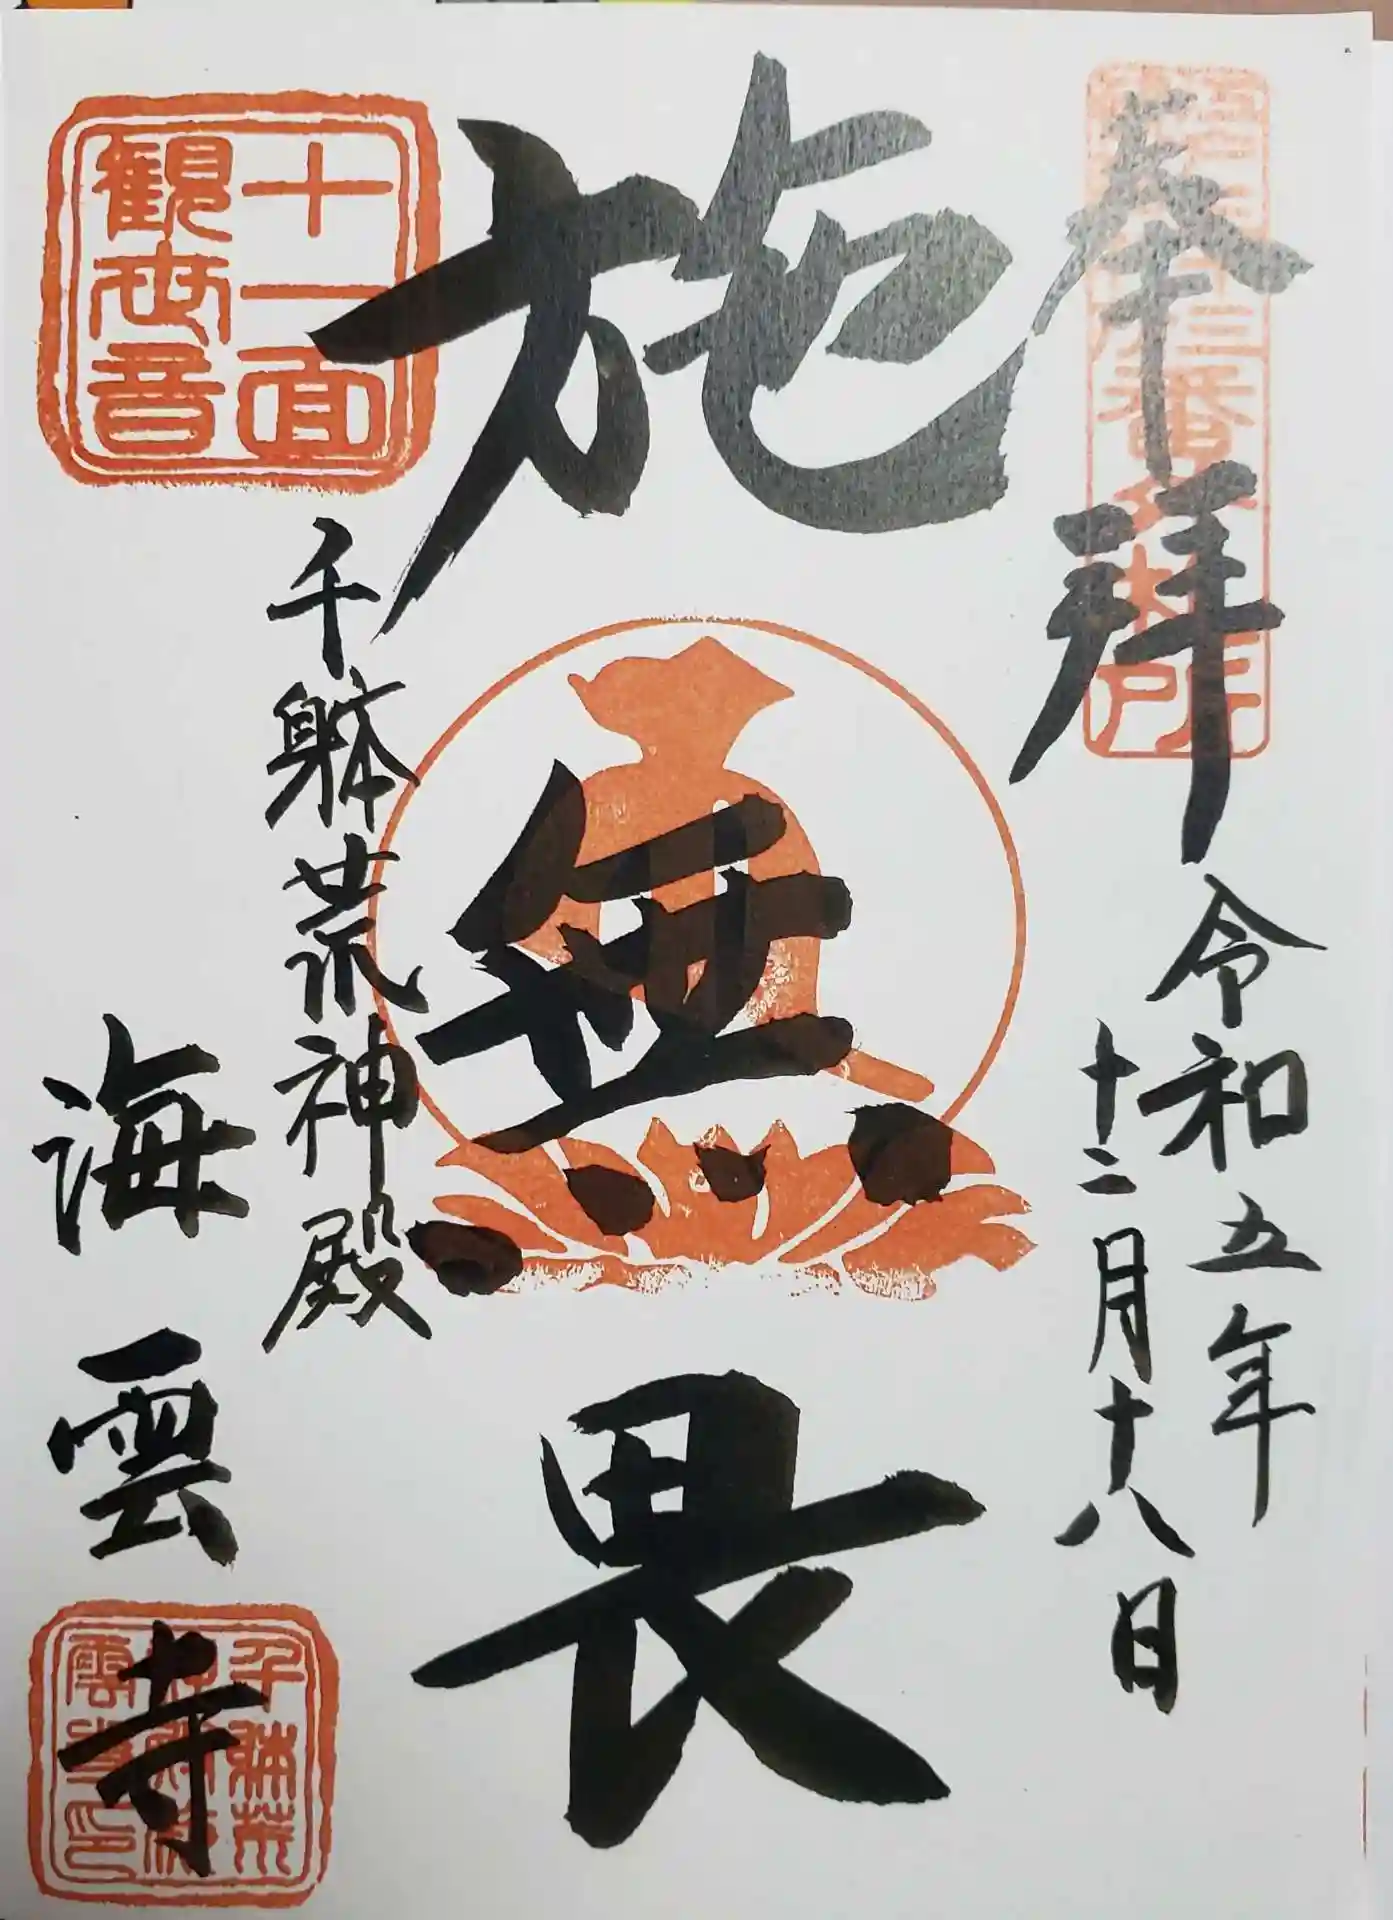 奉拝
令和五年
十二月十八日
施無畏
千躰荒神殿
海雲寺
十一面
観世音